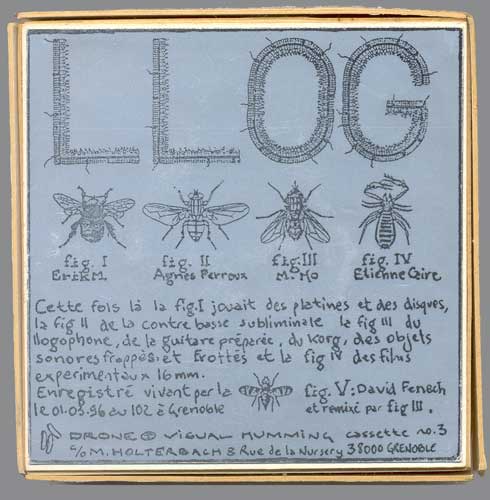 LLOG
fig. I fig. II fig. III fig. IV
ErikM. Agnès Perroux M. Ho Etienne Caire
Cette fois là la fig.I jouait des platines et des disques,
la fig II de la contre basse subliminale la fig III du
llogophone, de la guitare préparée, du Korg, des objets
sonores frappés et frottés et la fig IV des films
experimentaux 16mm.
Enregistré vivant par la fig. V: David Fenech
le 01.03.96 au 102 à Grenoble et remixé par fig III.
DRONE ® VISUAL HUMMING cassette no.3
C/O M. HOLTERBACH 8 Rue de la Nursery 38000 GRENOBLE